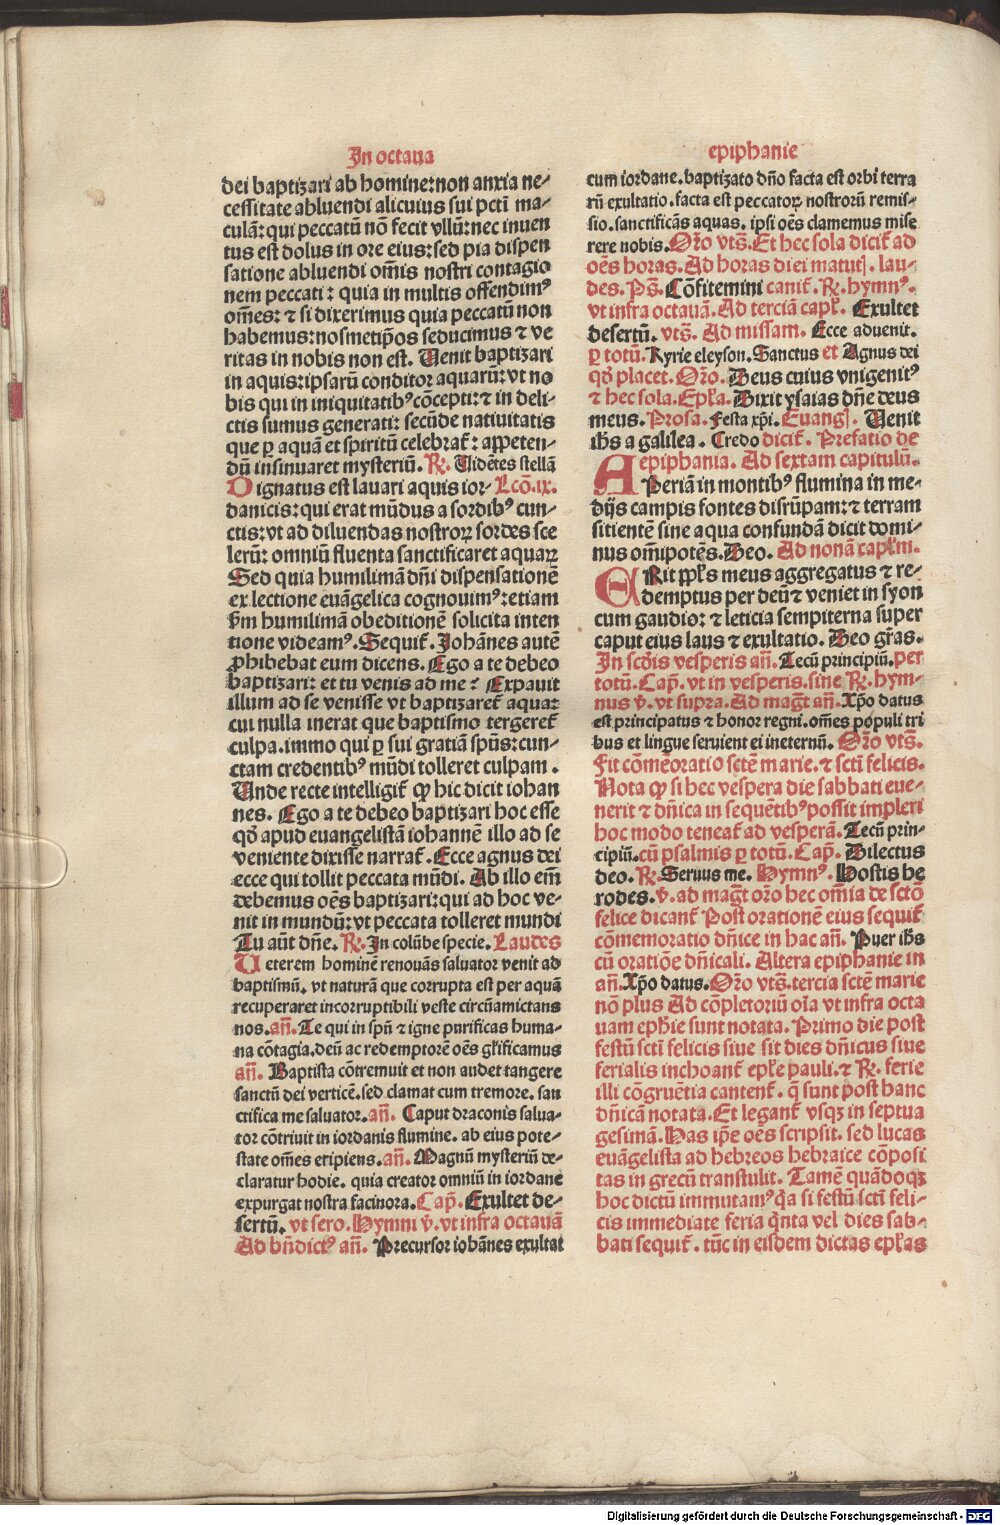 In octaua
dei baptizari ab homine: non anxia ne⸗
cessitate abluendi alicuius sui pctī ma⸗
culā: qui peccatū nō fecit vllū: nec inuen
tus est dolus in ore eius: sed pia dispen
satione abluendi om̄is nostri contagio
nem peccati: quia in multis offendimꝰ
om̄es: ⁊ si dixerimus quia peccatū non
habemus: nosmetip̄os seducimus ⁊ ve
ritas in nobis non est. Uenit baptizari
in aquis: ipsarū conditor aquarū: vt no
bis qui in iniquitatibꝰ cōcepti: ⁊ in deli⸗
ctis sumus generati: secūde natiuitatis
que ꝑ aquā et spiritū celebraƭ: appeten⸗
dū insinuaret mysteriū. ℟. Uidētes stellā
Dignatus est lauari aquis ior⸗ Lcō.ix.
danicis: qui erat mūdus a sordibꝰ cun⸗
ctis: vt ad diluendas nostroꝝ sordes sce
lerū: omniū fluenta sanctificaret aquaꝝ
Sed quia humilimā dn̄i dispensationē
ex lectione euāgelica cognouimꝰ: etiam
v̄m humilimā obeditionē solicita inten
tione videamꝰ. Sequiƭ. Johānes autē
ꝓhibebat eum dicens. Ego a te debeo
baptizari: et tu venis ad me? Expauit
illum ad se venisse vt baptizareƭ aqua:
cui nulla inerat que baptismo tergereƭ
culpa. immo qui ꝑ sui gratiā spūs: cun⸗
ctam credentibꝰ mūdi tolleret culpam.
Unde recte intelligiƭ ꝙ hic dicit iohan
nes. Ego a te debeo baptizari hoc esse
qd̄ apud euangelistā iohannē illo ad se
veniente dixisse narraƭ. Ecce agnus dei
ecce qui tollit peccata mūdi. Ab illo em̄
debemus oēs baptizari: qui ad hoc ve⸗
nit in mundū: vt peccata tolleret mundi
Tu aūt dn̄e. ℟. In colūbe specie. Laudes
Ueterem hominē renouās saluator venit ad
baptismū. vt naturā que corrupta est per aquā
recuperaret incorruptibili veste circūamictans
nos. an̄. Te qui in spū ⁊ igne purificas huma⸗
na cōtagia. deū ac redemptorē oēs gl̄ificamus
an̄. Baptista cōtremuit et non audet tangere
sanctū dei verticē. sed clamat cum tremore. san
ctifica me saluator. an̄. Caput draconis salua⸗
tor cōtriuit in iordanis flumine. ab eius pote⸗
state om̄es eripiens. an̄. Magnū mysteriū de⸗
claratur hodie. quia creator omniū in iordane
expurgat nostra facinora. Cap̄. Exultet de⸗
sertū. vt sero. Hymni ꝟ. vt infra octauā
Ad bn̄dictꝰ an̄. Precursor iohānes exultat
epiphanie
cum iordane. baptizato dn̄o facta est orbi terra
rū exultatio. facta est peccatoꝝ nostrorū remis⸗
sio. sanctificās aquas. ipsi oēs clamemus mise
rere nobis. Or̄o vts̄. Et hec sola diciƭ ad
oēs horas. Ad horas diei matutꝭ. lau⸗
des. Ps̄. Cōfitemini caniƭ. ℟. hymnꝰ.
vt infra octauā. Ad terciā capl̄. Exultet
desertū. vts̄. Ad missam. Ecce aduenit.
ꝑ totū. Kyrie eleyson. Sanctus et Agnus dei
qd̄ placet. Or̄o. Deus cuius vnigenitꝰ
⁊ hec sola. Epl̄a. Dixit ysaias dn̄e deus
meus. Prosa. Festa xp̄i. Euangꝭ. Uenit
ih̄s a galilea. Credo diciƭ. Prefatio de
epiphania. Ad sextam capitulū.
Aperiā in montibꝰ flumina in me⸗
dijs campis fontes disrūpam: ⁊ terram
sitientē sine aqua confundā dicit domi⸗
nus om̄ipotēs. Deo. Ad nonā capl̄m.
Erit ppl̄s meus aggregatus ⁊ re⸗
demptus per deū ⁊ veniet in syon
cum gaudio: ⁊ leticia sempiterna super
caput eius laus ⁊ exultatio. Deo gr̄as.
In scd̄is vesperis an̄. Tecū principiū. per
totū. Cap̄. vt in vesperis. sine ℟. hym⸗
nus ꝟ. vt supra. Ad maḡt an̄. Xp̄o datus
est principatus ⁊ honor regni. om̄es populi tri
bus et lingue seruient ei ineternū. Or̄o vts̄.
Fit cōmēoratio sctē marie. ⁊ sctī felicis.
Nota ꝙ si hec vespera die sabbati eue⸗
nerit ⁊ dn̄ica in sequētibꝰ possit impleri
hoc modo teneaƭ ad vesperā. Tecū prin⸗
cipiū. cū psalmis ꝑ totū. Cap̄. Dilectus
deo. ℟. Seruus me. Hymnꝰ. Hostis he
rodes. ꝟ. ad maḡt or̄o hec om̄ia de sctō
felice dicanƭ Post orationē eius sequiƭ
cōmemoratio dn̄ice in hac an̄. Puer ih̄s
cū oratiōe dn̄icali. Altera epiphanie in
an̄. Xp̄o datus. Or̄o vts̄. tercia sctē marie
nō plus Ad cōpletoriū oīa vt infra octa
uam eph̄ie sunt notata. Primo die post
festū sctī felicis siue sit dies dn̄icus siue
ferialis inchoanƭ epl̄e pauli. ⁊ ℟. ferie
illi cōgruētia cantenƭ. q̄ sunt post hanc
dn̄icā notata. Et leganƭ vsqꝫ in septua
gesimā. Has ip̄e oēs scripsit. sed lucas
euāgelista ad hebreos hebraice cōposi
tas in grecū transtulit. Tamē quādoqꝫ
hoc dictū immutamꝰ q̄a si festū sctī feli⸗
cis immediate feria q̄nta vel dies sab⸗
bati sequiƭ. tūc in eisdem dictas epl̄as
Digitalisierung gefördert durch die Deutsche Forschungsgemeinschaft - DFG